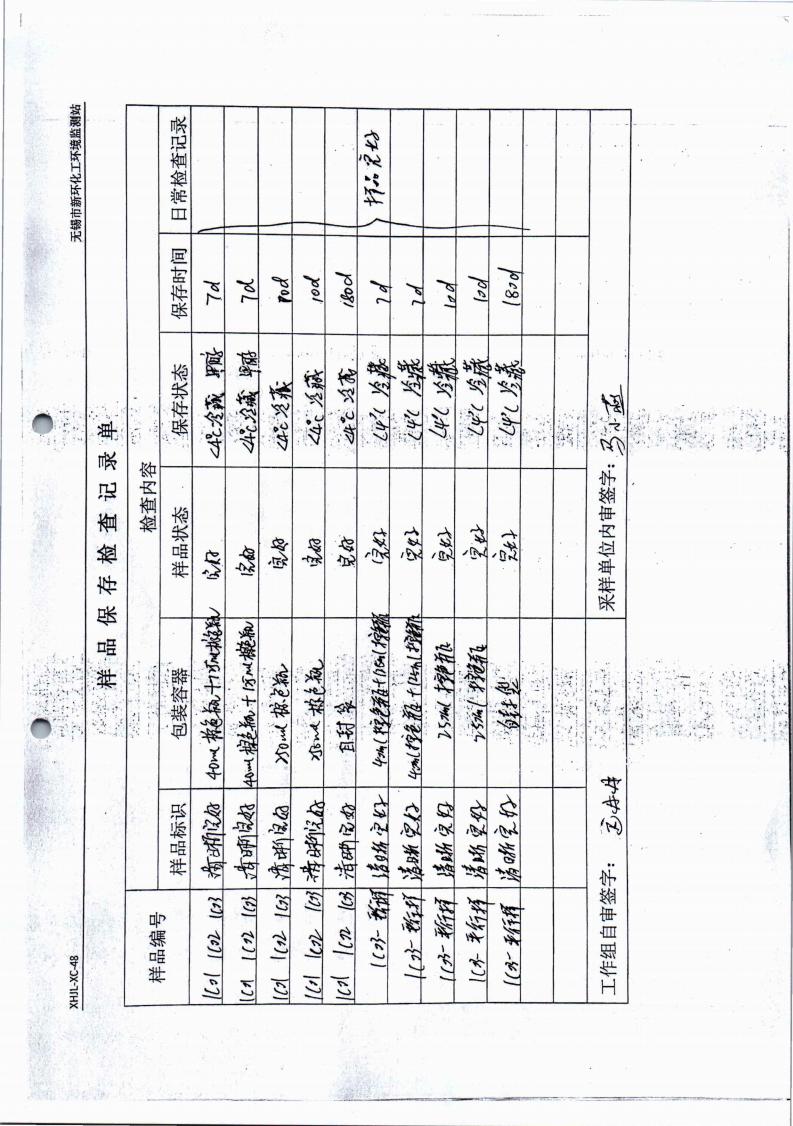 XHJL-XC-48 无锡市新环化工环境监测站
样品保存检查记录单
样品编号 检查内容
样品标识 包装容器 样品状态 保存状态 保存时间 日常检查记录
1C01 1C02 1C03 清晰完好 40ml棕色瓶+175ml棕色瓶 完好 <4℃冷藏 甲醇 7d
1C01 1C02 1C03 清晰完好 40ml棕色瓶+175ml棕色瓶 完好 <4℃冷藏 甲醇 7d
1C01 1C02 1C03 清晰完好 250ml棕色瓶 完好 <4℃冷藏 10d
1C01 1C02 1C03 清晰完好 250ml棕色瓶 完好 <4℃冷藏 10d
1C01 1C02 1C03 清晰完好 自封袋 完好 <4℃冷藏 180d
1C03-平行样 清晰完好 完好 <4℃冷藏 7d 样品完好
1C03-平行样 清晰完好 完好 <4℃冷藏 7d
1C03-平行样 清晰完好 250ml棕色瓶 完好 <4℃冷藏 10d
1C03-平行样 清晰完好 250ml棕色瓶 完好 <4℃冷藏 10d
1C03-平行样 清晰完好 自封袋 完好 <4℃冷藏 180d
工作组自审签字： 采样单位内审签字：马小燕